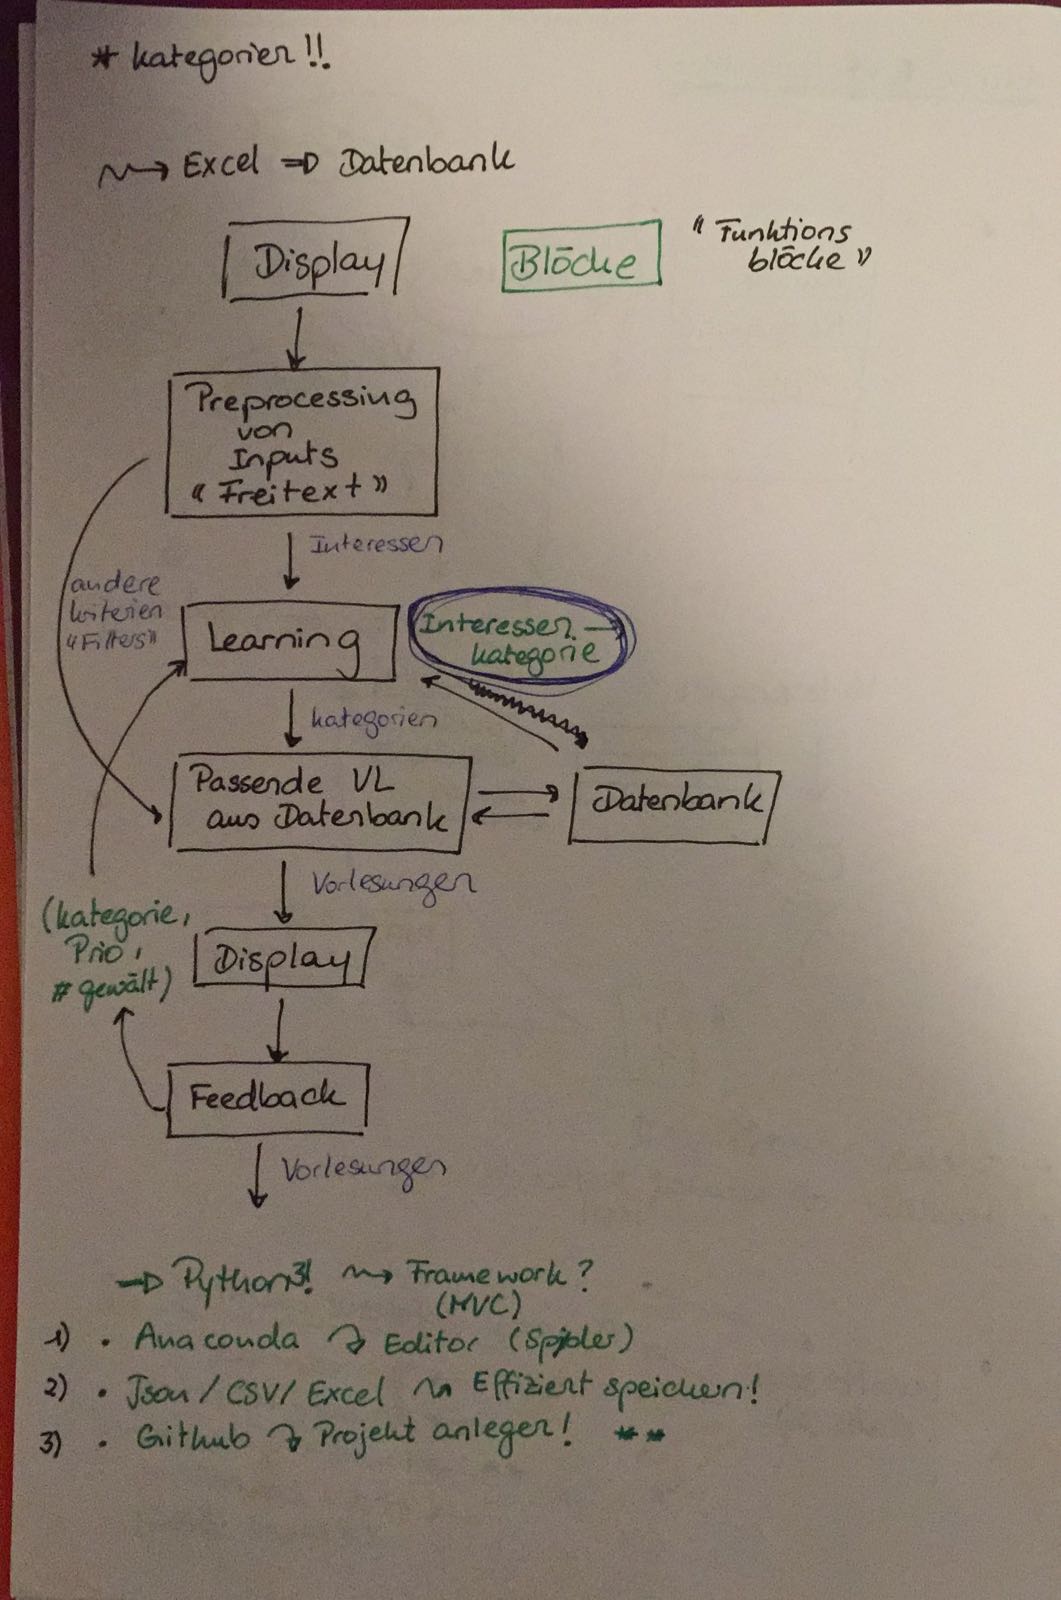 * kategorien!!
Excel ⇒ Datenbank
Display
Blöcke
"Funktions
blöcke"
Preprocessing
von
Inputs
"Freitext"
Interessen
andere
kriterien
"Filters"
Learning
Interessen →
kategorie
kategorien
Passende VL
aus Datenbank
Datenbank
Vorlesungen
(kategorie,
Prio,
# gewält)
Display
Feedback
Vorlesungen
⇒ Python3! → Framework?
(MVC)
1) • Anaconda → Editor (Spyder)
2) • Json/CSV/Excel Effizient speichern!
3) • Github → Projekt anlegen! **